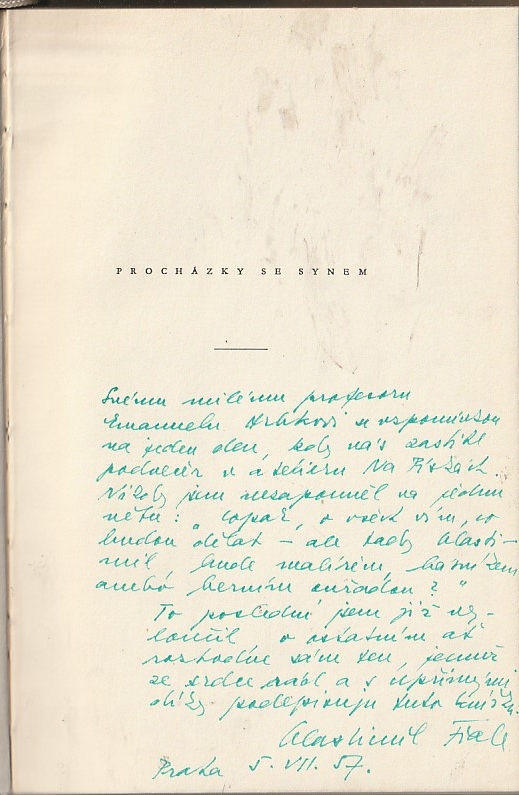 PROCHÁZKY SE SYNEM
Svému milému profesoru
Emanuelu se vzpomínkou
na jeden den, kdy nás zastihl
podvečer v atelieru Na
Nikdy jsem nezapomněl na jednu
větu: „ vím, co
budou dělat – ale tady Vlasti-
mil, bude malířem, básníkem
anebo berním ouřadou?"
To poslední jsem již vy-
loučil o ostatním ať
rozhodne sám ten, jemuž
ze srdce rád a s upřímnými
díky podepisuji tuto knížku.
Vlastimil Fiala
Praha 5. VII. 57.